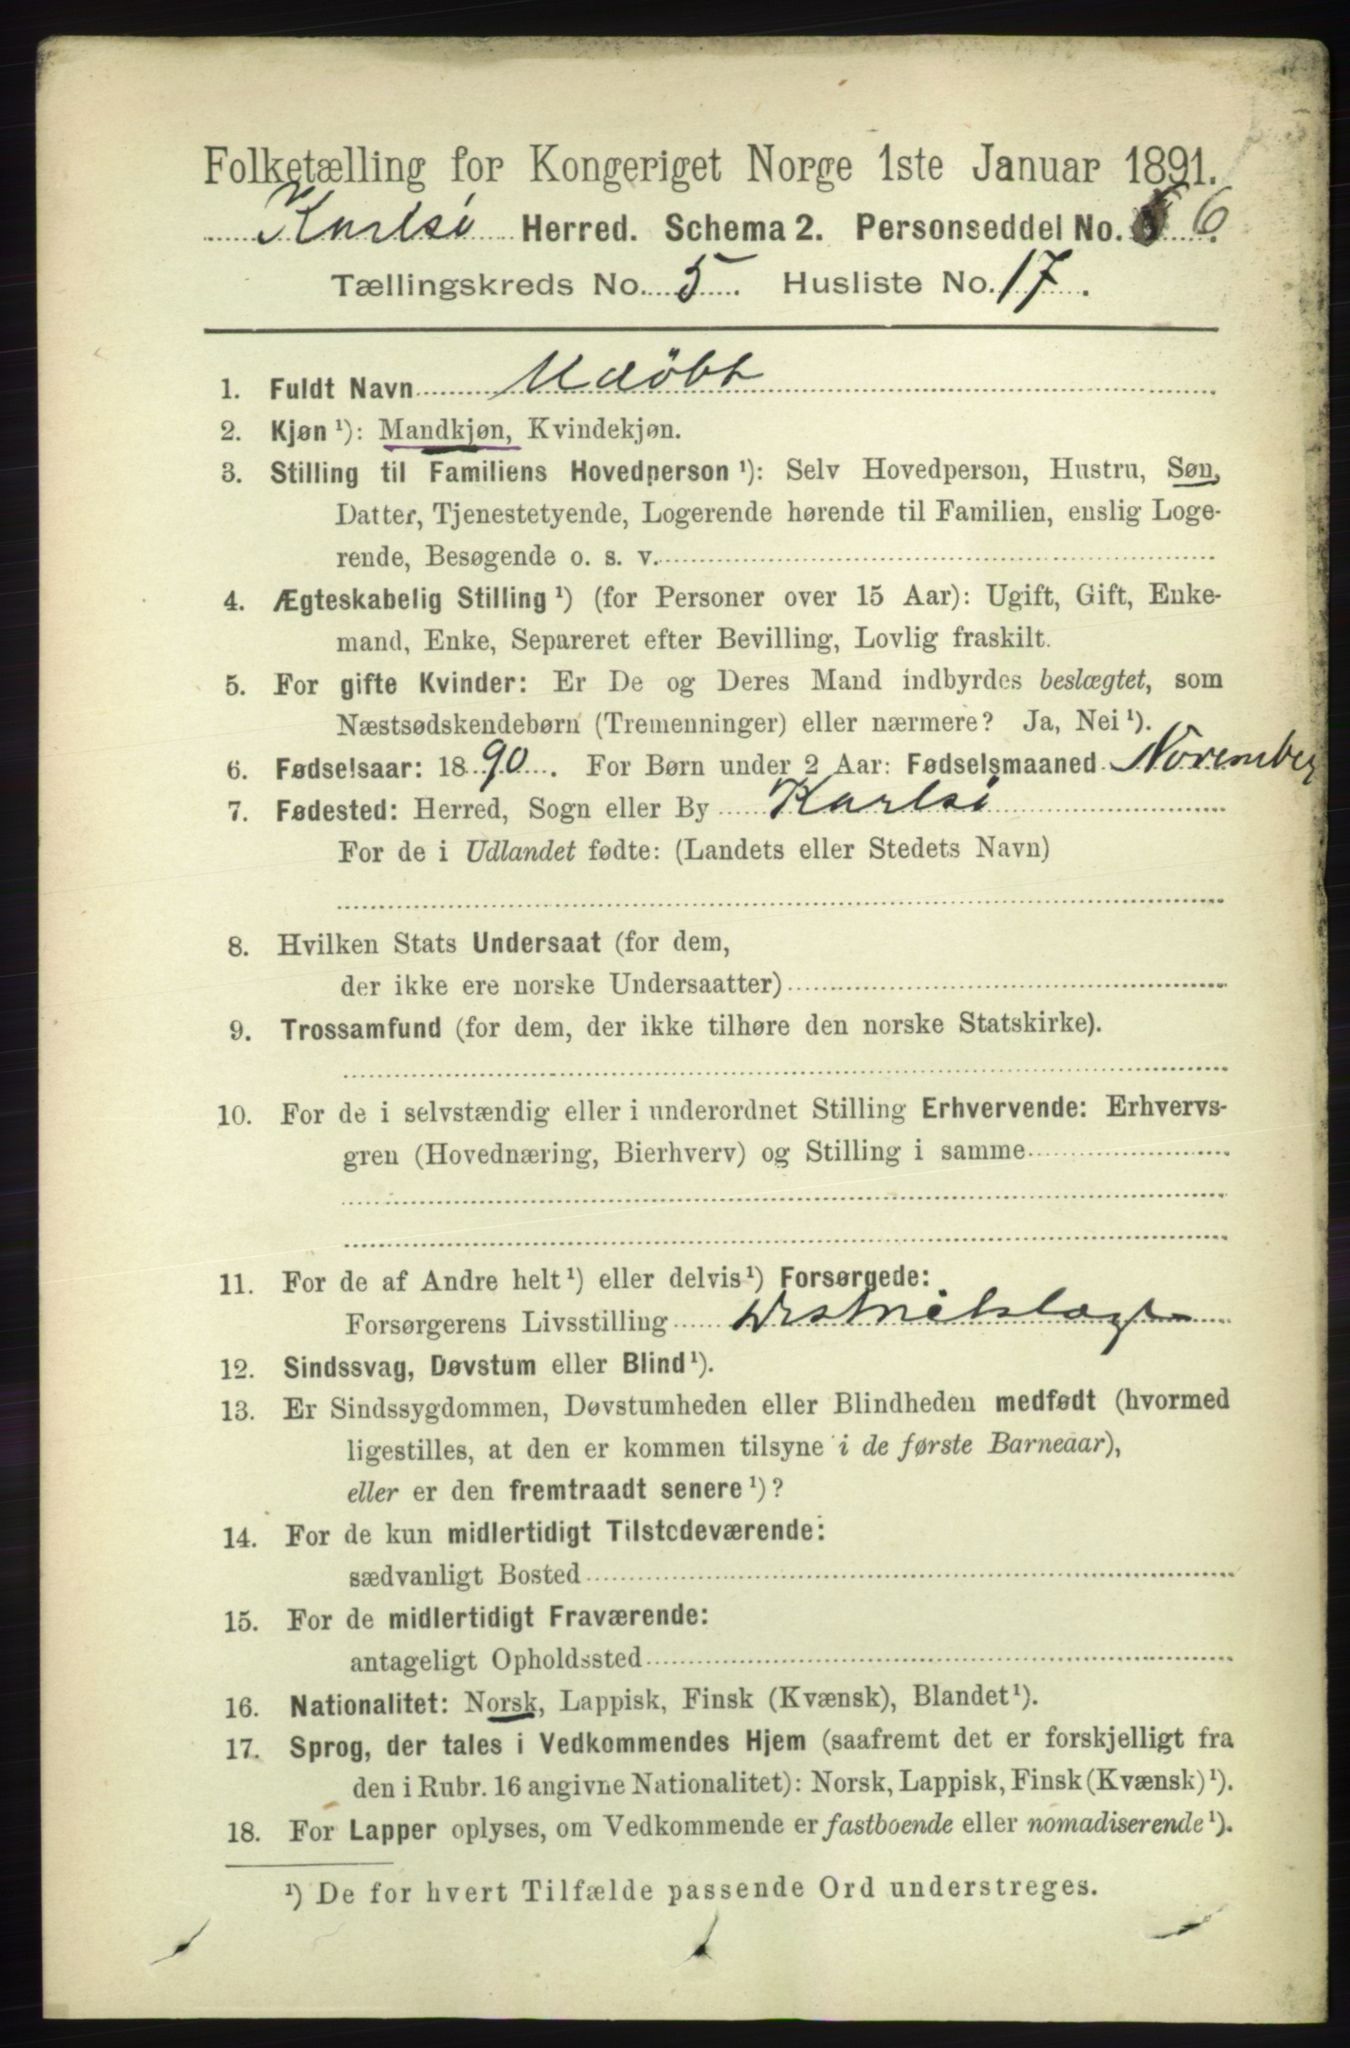 Folketælling for Kongeriget Norge 1ste Januar 1891.
Karlsø Herred. Schema 2. Personseddel No. 6
Tællingskreds No. 5. Husliste No. 17.
1. Fuldt Navn Udøbt
2. Kjøn ¹): Mandkjøn, Kvindekjøn.
3. Stilling til Familiens Hovedperson ¹): Selv Hovedperson, Hustru, Søn,
Datter, Tjenestetyende, Logerende hørende til Familien, enslig Loge-
rende, Besøgende o. s. v.
4. Ægteskabelig Stilling ¹) (for Personer over 15 Aar): Ugift, Gift, Enke-
mand, Enke, Separeret efter Bevilling, Lovlig fraskilt.
5. For gifte Kvinder: Er De og Deres Mand indbyrdes beslægtet, som
Næstsødskendebørn (Tremenninger) eller nærmere? Ja, Nei ¹).
6. Fødselsaar: 1890. For Børn under 2 Aar: Fødselsmaaned November
7. Fødested: Herred, Sogn eller By Karlsø
For de i Udlandet fødte: (Landets eller Stedets Navn)
8. Hvilken Stats Undersaat (for dem,
der ikke ere norske Undersaatter)
9. Trossamfund (for dem, der ikke tilhøre den norske Statskirke).
10. For de i selvstændig eller i underordnet Stilling Erhvervende: Erhvervs-
gren (Hovednæring, Bierhverv) og Stilling i samme
11. For de af Andre helt ¹) eller delvis ¹) Forsørgede:
Forsørgerens Livsstilling Distriktslæge
12. Sindssvag, Døvstum eller Blind ¹).
13. Er Sindssygdommen, Døvstumheden eller Blindheden medfødt (hvormed
ligestilles, at den er kommen tilsyne i de første Barneaar),
eller er den fremtraadt senere ¹)?
14. For de kun midlertidigt Tilstedeværende:
sædvanligt Bosted
15. For de midlertidigt Fraværende:
antageligt Opholdssted
16. Nationalitet: Norsk, Lappisk, Finsk (Kvænsk), Blandet ¹).
17. Sprog, der tales i Vedkommendes Hjem (saafremt det er forskjelligt fra
den i Rubr. 16 angivne Nationalitet): Norsk, Lappisk, Finsk (Kvænsk) ¹).
18. For Lapper oplyses, om Vedkommende er fastboende eller nomadiserende ¹).
¹) De for hvert Tilfælde passende Ord understreges.